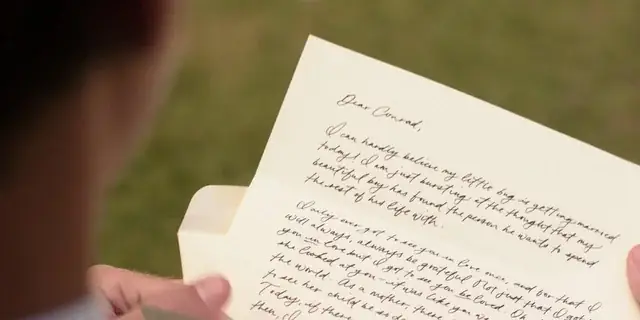 Dear Conrad,
I can hardly believe my little boy is getting married
today! I am just bursting at the thought that my
beautiful boy has found the person he wants to spend
the rest of his life with.
I only ever got to see you in love once, and for that I
will always, always be grateful. Not just that I got
you in love but I got to see you be loved.
she looked at you—it was like you
the world. As a mother, there
to see her child be so
Today, if there
then, I